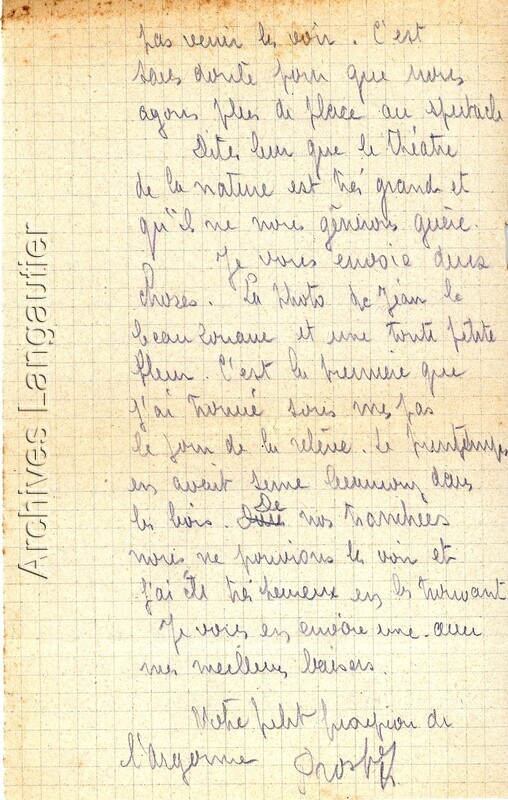 pas venir les voir. C'est
sans doute pour que nous
ayons plus de place au spectacle
Dites leur que le théâtre
de la nature est très grand et
qu'ils ne nous gênerons guère.
Je vous envoie deux
choses. La photo de Jean le
beau zouave et une toute petite
fleur. C'est la premiere que
j'ai trouvé sous mes pas
le jour de la relève. Le printemps
en avait semé beaucoup dans
les bois. De nos tranchées
nous ne pouvions les voir et
j'ai été très heureux en les trouvant
Je vous en envoie une avec
mes meilleurs baisers.
Votre petit de
l'Argonne
Archives Langautier